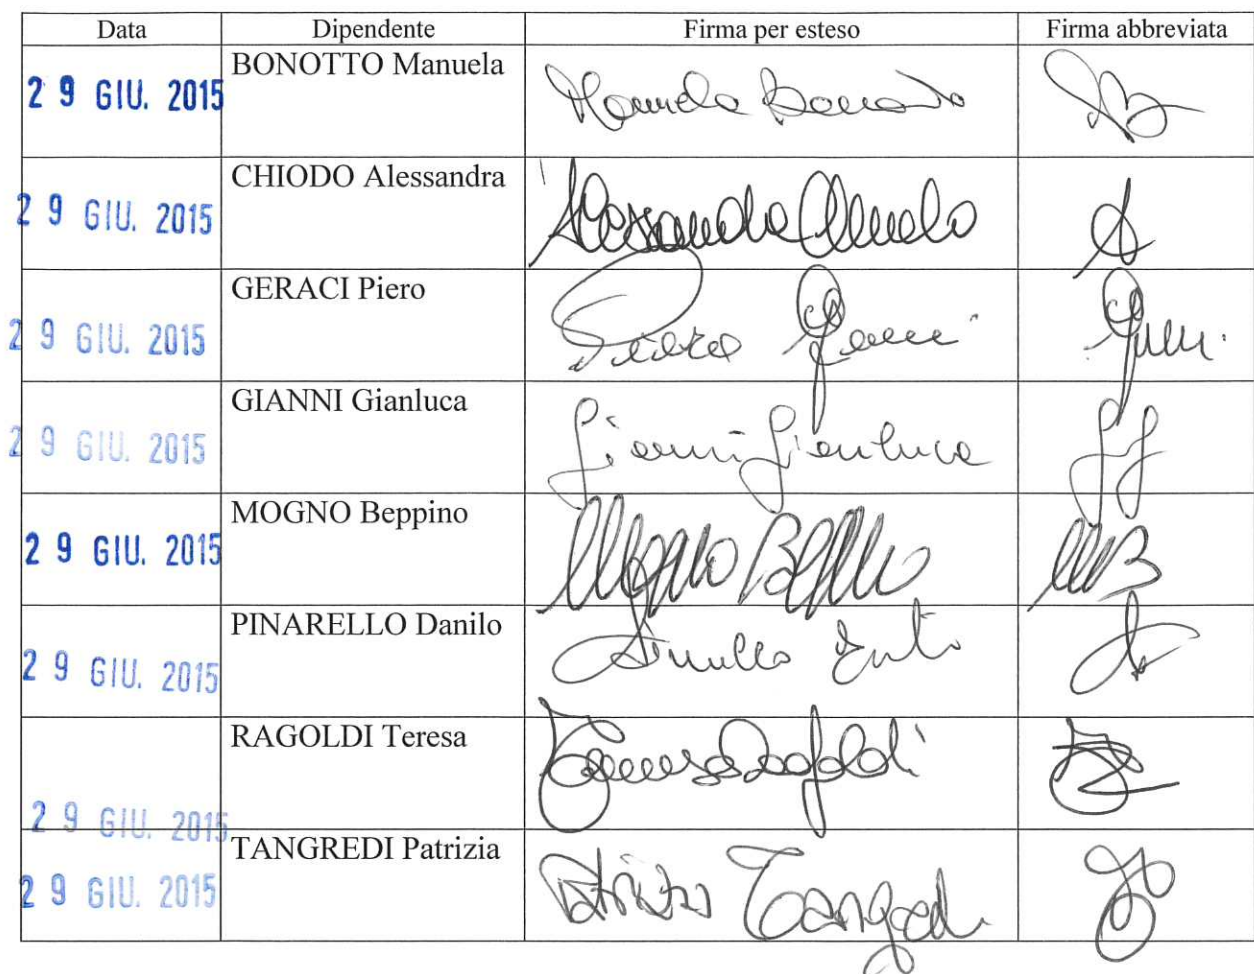 Data Dipendente Firma per esteso Firma abbreviata
29 GIU. 2015 BONOTTO Manuela Manuela Bonotto
29 GIU. 2015 CHIODO Alessandra Alessandra Chiodo
29 GIU. 2015 GERACI Piero Piero Geraci
29 GIU. 2015 GIANNI Gianluca Gianni Gianluca GG
29 GIU. 2015 MOGNO Beppino Mogno Beppino MB
29 GIU. 2015 PINARELLO Danilo
29 GIU. 2015 RAGOLDI Teresa Teresa Ragoldi
29 GIU. 2015 TANGREDI Patrizia Patrizia Tangredi